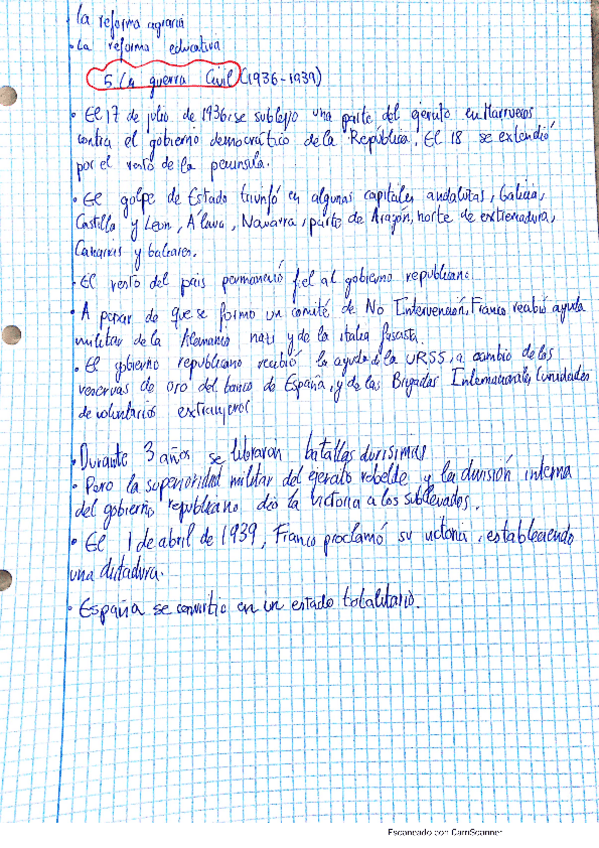 la reforma agraria
• La reforma educativa
5. La guerra Civil (1936-1939)
• El 17 de julio de 1936, se sublevó una parte del ejercito en Marruecos
contra el gobierno democrático de la República. El 18 se extendió
por el resto de la peninsula.
• El golpe de Estado triunfó en algunas capitales andaluzas, Galicia,
Castilla y Leon, Alava, Navarra, parte de Aragón, norte de extremadura,
Canarias y baleares.
• El resto del pais permaneció fiel al gobierno republicano
• A pesar de que se formo un comité de No Intervención, Franco recibió ayuda
militar de la Alemania nazi y de la italia fascista.
• El gobierno republicano recibió la ayuda de la URSS, a cambio de las
reservas de oro del banco de España, y de las Brigadas Internacionales (unidades
de voluntarios extranjeros
• Durante 3 años se libraron batallas durisimas
• Pero la superioridad militar del ejercito rebelde y la división interna
del gobierno republicano dio la victoria a los sublevados.
• El 1 de abril de 1939, Franco proclamó su victoria, estableciendo
una dictadura.
• España se convirtio en un estado totalitario.
Escaneado con CamScanner